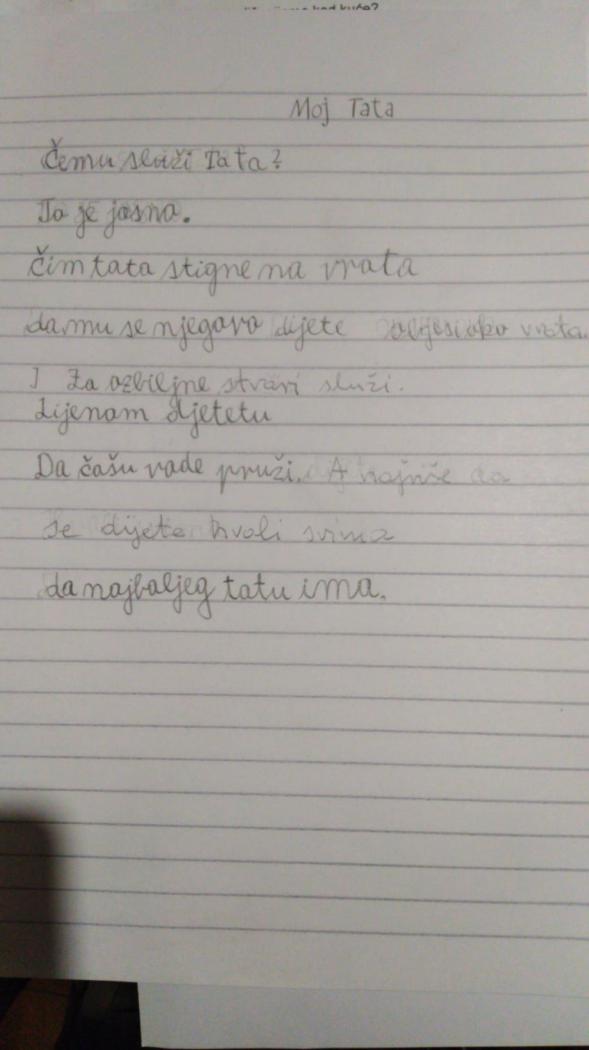 kod kuće?
Moj Tata
Čemu služi Tata?
To je jasno.
Čim tata stigne na vrata
da mu se njegovo dijete objesi oko vrata.
I Za ozbiljne stvari služi.
Lijenom djetetu
Da čašu vode pruži. A najviše da
se dijete hvali svima
da najboljeg tatu ima.